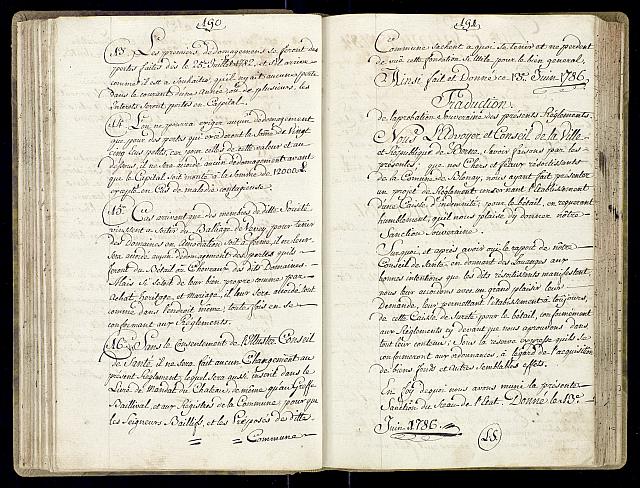 190
13. Les premiers dédomagemens se feront des
pertes faites dès le 25e Juillet 1782, et s'il arrive
comme il est a souhaiter, qu'il n'y ait aucune perte
dans le courant d'une Année, ou de plusieurs, les
Interets seront portés en Capital.
14. L'on ne pourra exiger aucun dédomagement
que pour des pertes qui excèderont la Somme de Vingt
cinq Ecus petits, car pour celles de cette valeur et au
dessous, il ne sera accordé aucun dédomagement avant
que le Capital soit monté à la Somme de 12000 L.
excepté en Cas de maladie contagieuse.
15. Cas arrivant que des membres de ditte Société
vinssent a sortir du Balliage de Vevey pour tenir
des Domaines en Amodiation soit a ferme, il ne leur
sera accordé aucun dédomagement des pertes qu'ils
feront du Bétail ou Chevaux des dits Domaines.
Mais si c'étoit de leur bien propre comme par
Achat, heritage, et mariage, il leur sera accordé tout
comme dans l'endroit même, toutefois en se
conformant aux Règlements.
16. Sans le Consentement de l'Illustre Conseil
de Santé, il ne sera fait aucun Changement au
présent Règlement, lequel sera aussi inscrit dans le
Livre de Mandat du Chateau de même qu'au Greffe
Baillival, et aux Régistres de la Commune pour que
les Seigneurs Baillifs, et les Préposés de ditte
Commune
191
Commune sachent a quoi se tenir et ne perdent
de vuë cette fondation si utile pour le bien general.
Ainsi fait et Donné ce 13e Juin 1786.
Traduction
de l'aprobation Souveraine des présents Règlements.
Nous L'Advoyer et Conseil de la Ville
et République de Berne, savoir faisons par les
présentes, que nos Chers et féaux ressortissants
de la Commune de Blonay, nous ayant fait présenter
un projet de Règlement concernant l'établissement
d'une Caisse d'indemnité pour le bétail, en requerant
humblement, qu'il nous plaise d'y donner nôtre
Sanction Souveraine.
Surquoi, et après avoir ouï le raport de nôtre
Conseil de Santé, en donnant des louanges aux
bonnes intentions que les dits résortissants manifestent,
nous leur accordons avec un grand plaisir leur
Demande, leur permettant l'établissement à toujours,
de cette Caisse de Sureté pour le bétail, conformément
aux Règlements cy devant que nous aprouvons dans
tout leur contenu; sous la reserve expresse qu'ils se
conformeront aux ordonnances, à l'égard de l'acquisition
de biens fonds et autres Semblables effets.
En foi dequoi nous avons muni la présente
Sanction du Sceau de l'Etat. Donné le 13e
Juin 1786.
LS.